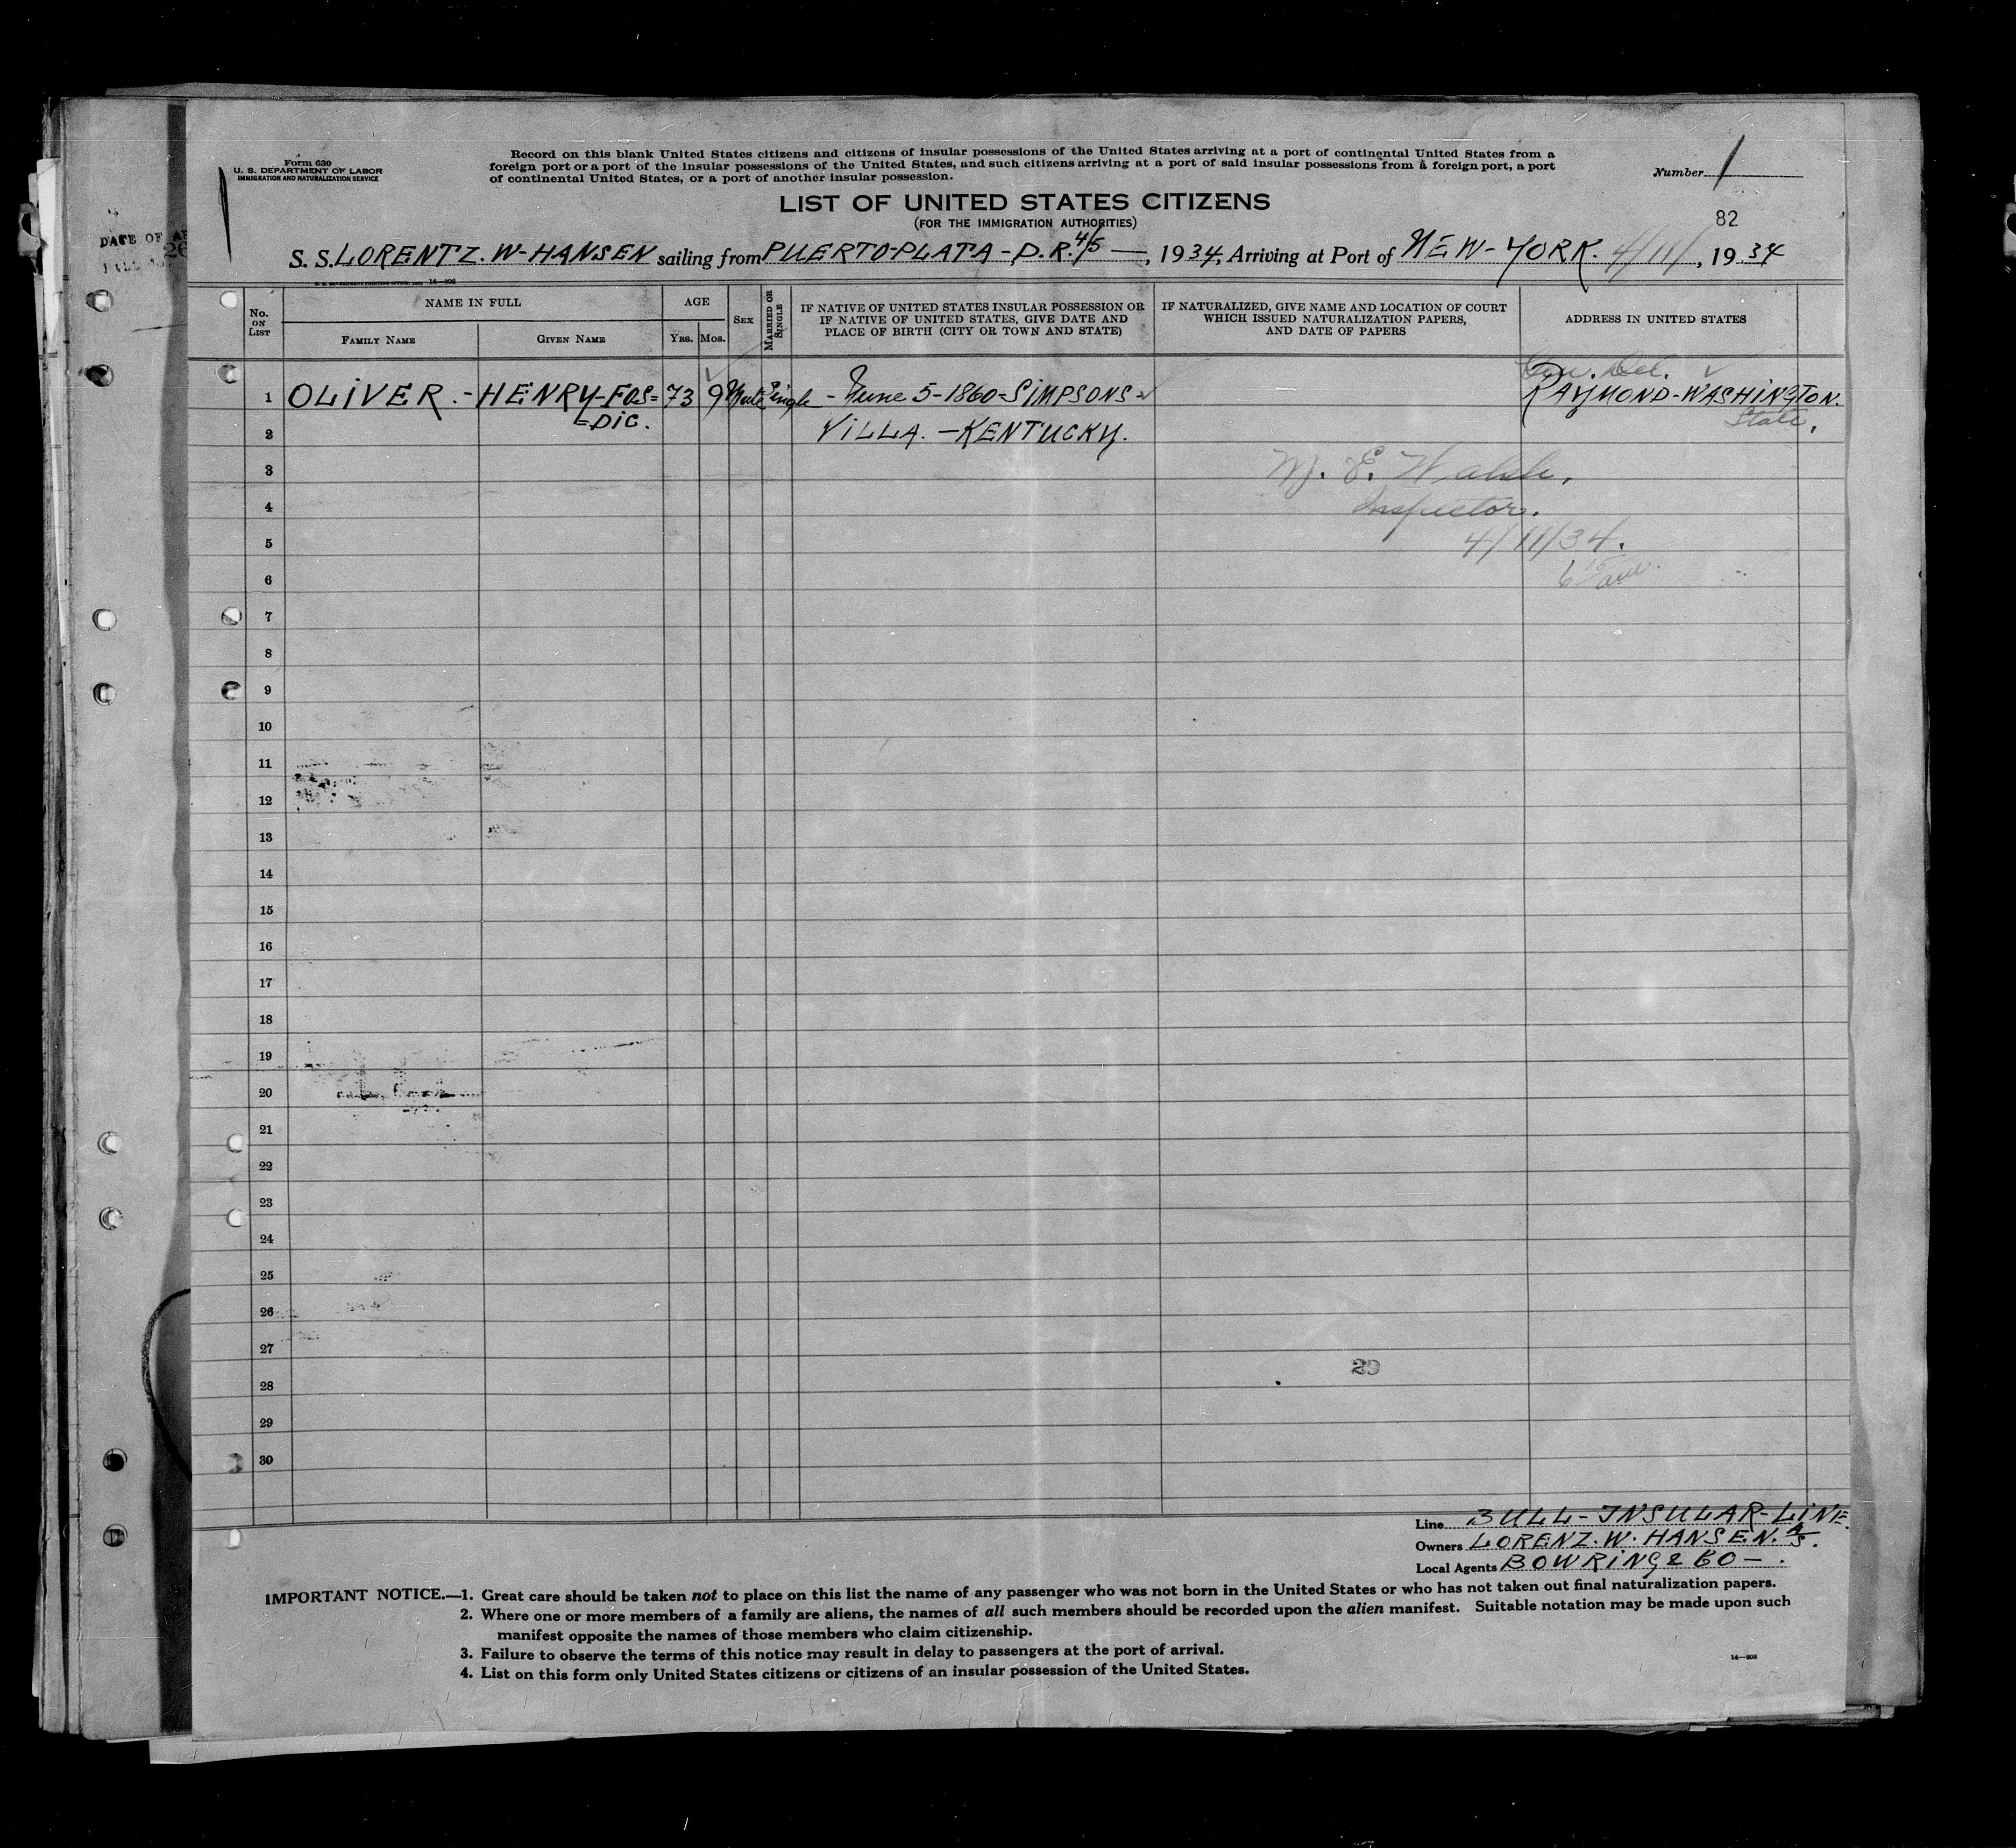 Form 630
U. S. DEPARTMENT OF LABOR
IMMIGRATION AND NATURALIZATION SERVICE
Record on this blank United States citizens and citizens of insular possessions of the United States arriving at a port of continental United States from a
foreign port or a port of the insular possessions of the United States, and such citizens arriving at a port of said insular possessions from a foreign port, a port
of continental United States, or a port of another insular possession.
Number 1
LIST OF UNITED STATES CITIZENS
(FOR THE IMMIGRATION AUTHORITIES)
82
DATE OF
26
S. S. LORENTZ. W-HANSEN sailing from PUERTO-PLATA-D.R. 4/5 —, 1934, Arriving at Port of NEW-YORK. 4/11/, 1934
14—808
No. ON LIST
NAME IN FULL
FAMILY NAME
GIVEN NAME
AGE
YRS.
MOS.
SEX
MARRIED OR SINGLE
IF NATIVE OF UNITED STATES INSULAR POSSESSION OR
IF NATIVE OF UNITED STATES, GIVE DATE AND
PLACE OF BIRTH (CITY OR TOWN AND STATE)
IF NATURALIZED, GIVE NAME AND LOCATION OF COURT
WHICH ISSUED NATURALIZATION PAPERS,
AND DATE OF PAPERS
ADDRESS IN UNITED STATES
Gen. Del.
1 OLIVER.- HENRY-FOS= 73 9 Male Single - June 5-1860=SIMPSONS= RAYMOND-WASHINGTON.
=DIC. State.
2 VILLA.-KENTUCKY.
3 M. E. Walsh,
4 Inspector.
5 4/11/34.
6 6 15 am.
7
8
9
10
11
12
13
14
15
16
17
18
19
20
21
22
23
24
25
26
27
29
28
29
30
Line BULL-INSULAR-LINE.
Owners LORENZ.W.HANSEN. A/S.
Local Agents BOWRING & CO—.
IMPORTANT NOTICE.—1. Great care should be taken not to place on this list the name of any passenger who was not born in the United States or who has not taken out final naturalization papers.
2. Where one or more members of a family are aliens, the names of all such members should be recorded upon the alien manifest. Suitable notation may be made upon such
manifest opposite the names of those members who claim citizenship.
3. Failure to observe the terms of this notice may result in delay to passengers at the port of arrival.
4. List on this form only United States citizens or citizens of an insular possession of the United States.
14—808